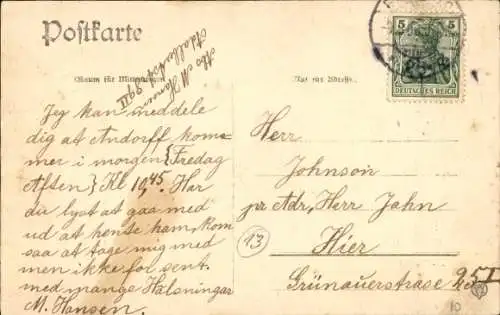 Postkarte
Raum für Mitteilungen
Nur für Adresse.
5
5
DEUTSCHES REICH
M. Hansen
Jeg kan meddele
dig at Andorff kom-
mer i morgen {Fredag
Aften} Kl 10,45. Har
du lyst at gaa med
ud at hente ham, kom
saa at tage mig med
men ikke for sent.
med mange Hälsningar
M. Hansen.
Herr
Johnson
pr Adr, Herr Jahn
13
Hier
Grünauerstrase 25 I
10